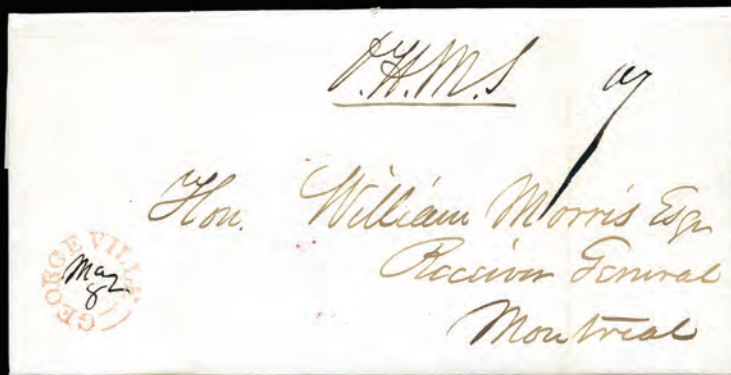 O.H.M.S
Hon. William Morris Esqr
Receiver General
Montreal
GEORGEVILLE
May
8